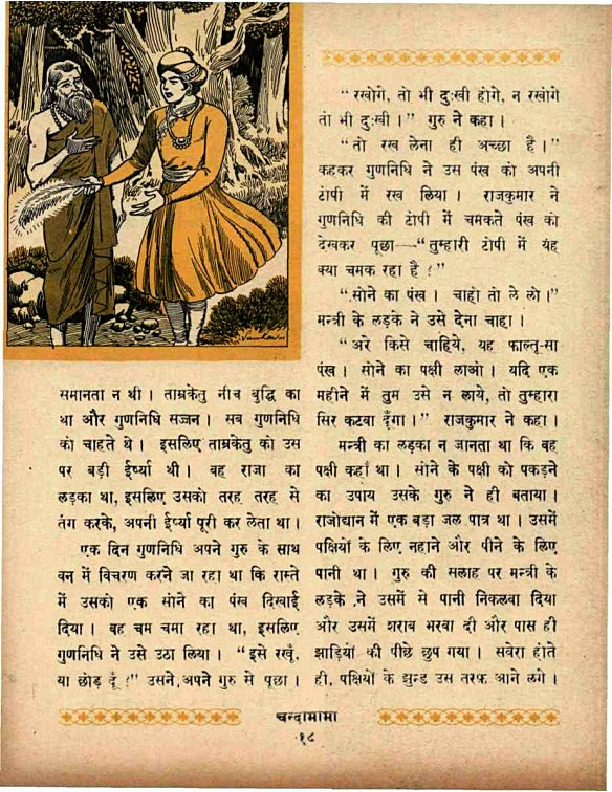 समानता न थी। ताम्रकेतु नीच बुद्धि का
था और गुणनिधि सज्जन। सब गुणनिधि
को चाहते थे। इसलिए ताम्रकेतु को उस
पर बड़ी ईर्ष्या थी। वह राजा का
लड़का था, इसलिए उसको तरह तरह से
तंग करके, अपनी ईर्ष्या पूरी कर लेता था।
एक दिन गुणनिधि अपने गुरु के साथ
वन में विचरण करने जा रहा था कि रास्ते
में उसको एक सोने का पंख दिखाई
दिया। वह चम चमा रहा था, इसलिए
गुणनिधि ने उसे उठा लिया। "इसे रखूँ,
या छोड़ दूँ?" उसने अपने गुरु से पूछा।
"रखोगे, तो भी दुःखी होगे, न रखोगे
तो भी दुःखी।" गुरु ने कहा।
"तो रख लेना ही अच्छा है।"
कहकर गुणनिधि ने उस पंख को अपनी
टोपी में रख लिया। राजकुमार ने
गुणनिधि की टोपी में चमकते पंख को
देखकर पूछा—"तुम्हारी टोपी में यह
क्या चमक रहा है?"
"सोने का पंख। चाहो तो ले लो।"
मन्त्री के लड़के ने उसे देना चाहा।
"अरे किसे चाहिये, यह फाल्तू-सा
पंख। सोने का पक्षी लाओ। यदि एक
महीने में तुम उसे न लाये, तो तुम्हारा
सिर कटवा दूँगा।" राजकुमार ने कहा।
मन्त्री का लड़का न जानता था कि वह
पक्षी कहाँ था। सोने के पक्षी को पकड़ने
का उपाय उसके गुरु ने ही बताया।
राजोद्यान में एक बड़ा जल पात्र था। उसमें
पक्षियों के लिए नहाने और पीने के लिए
पानी था। गुरु की सलाह पर मन्त्री के
लड़के ने उसमें से पानी निकलवा दिया
और उसमें शराब भरवा दी और पास ही
झाड़ियों की पीछे छुप गया। सवेरा होते
ही, पक्षियों के झुन्ड उस तरफ आने लगे।
चन्दामामा
१८